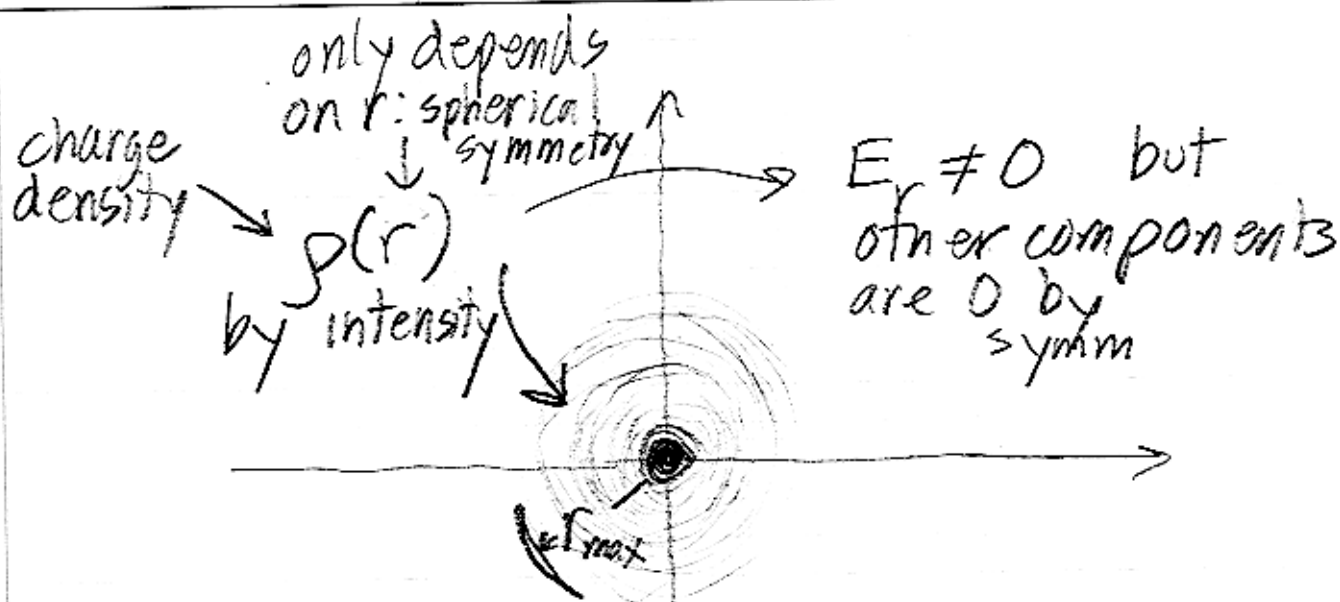 only depends
on r: spherical
symmetry
charge
density
ρ(r)
by intensity
E_r ≠ 0 but
other components
are 0 by
symm
r_max